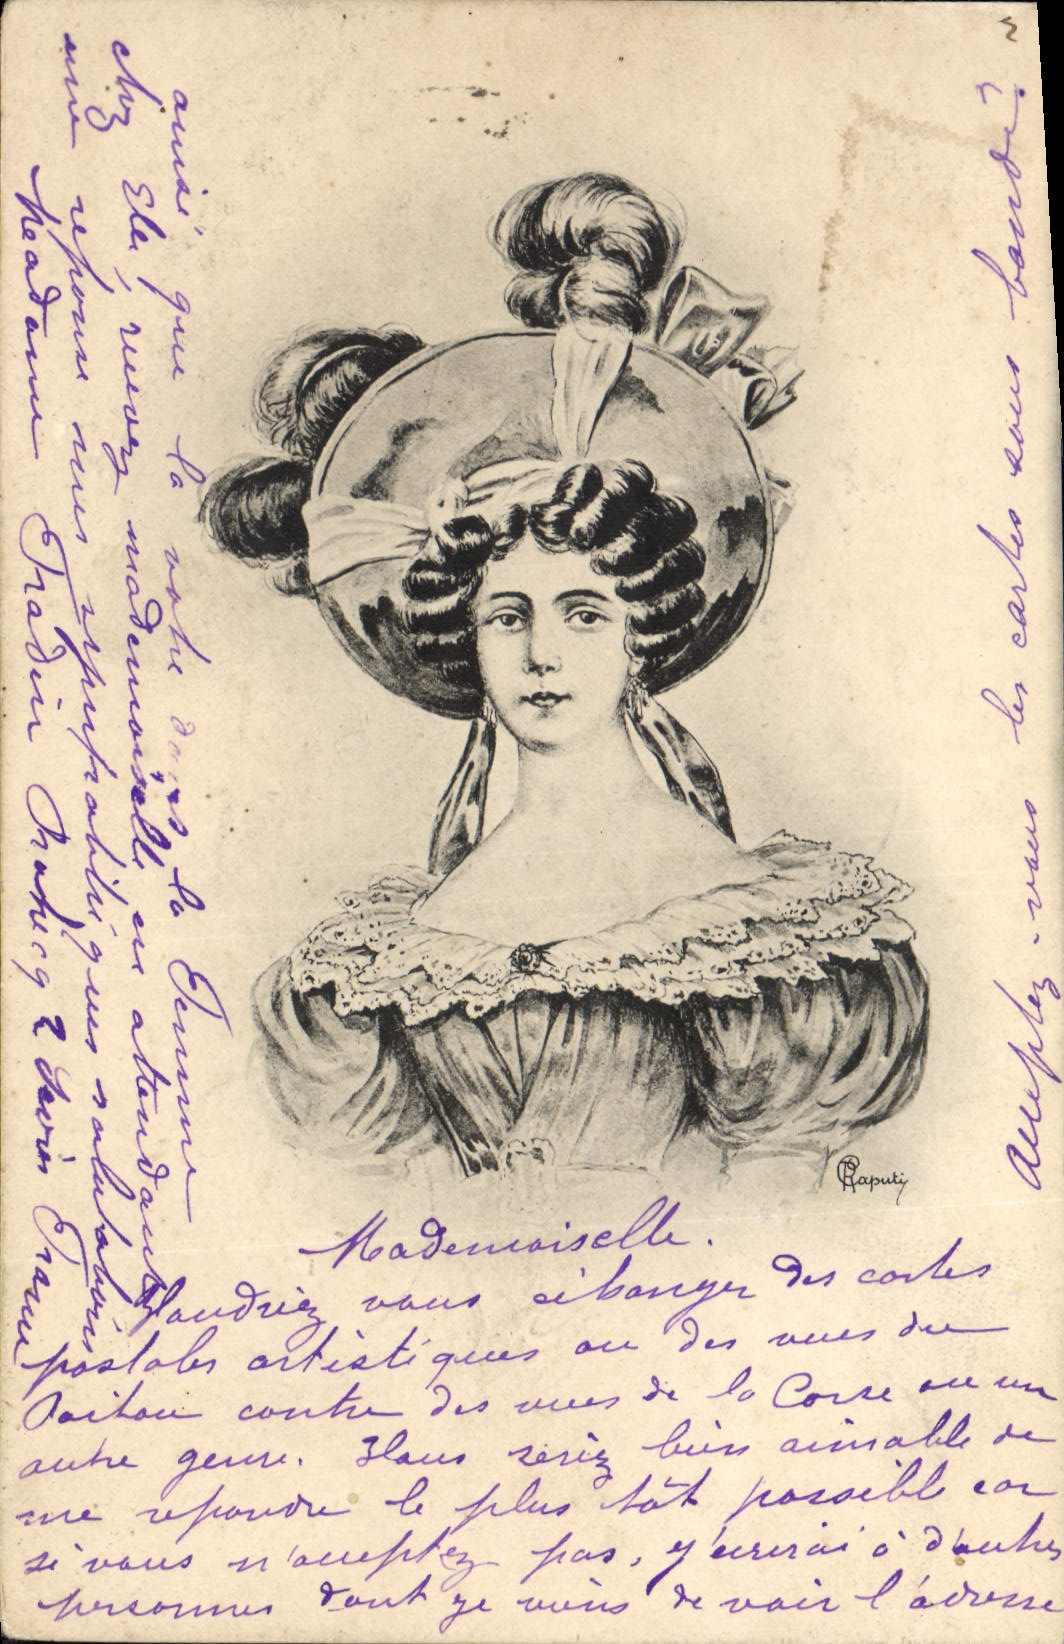 Mademoiselle.
Voudriez vous échanger des cartes
postales artistiques ou des vues du
Poitou contre des vues de la Corse ou un
autre genre. Vous seriez bien aimable de
me repondre le plus tôt possible car
si vous n'acceptez pas, j'ecrirai à d'autres
personnes dont je viens de voir l'adresse
ainsi que la votre dans la Femme
chez Elle, recevez mademoiselle en attendant
une reponse mes sympathiques salutations
Madame Tradin 2 Sèvres France
Acceptez-vous les cartes sous bande?
Caputi
2